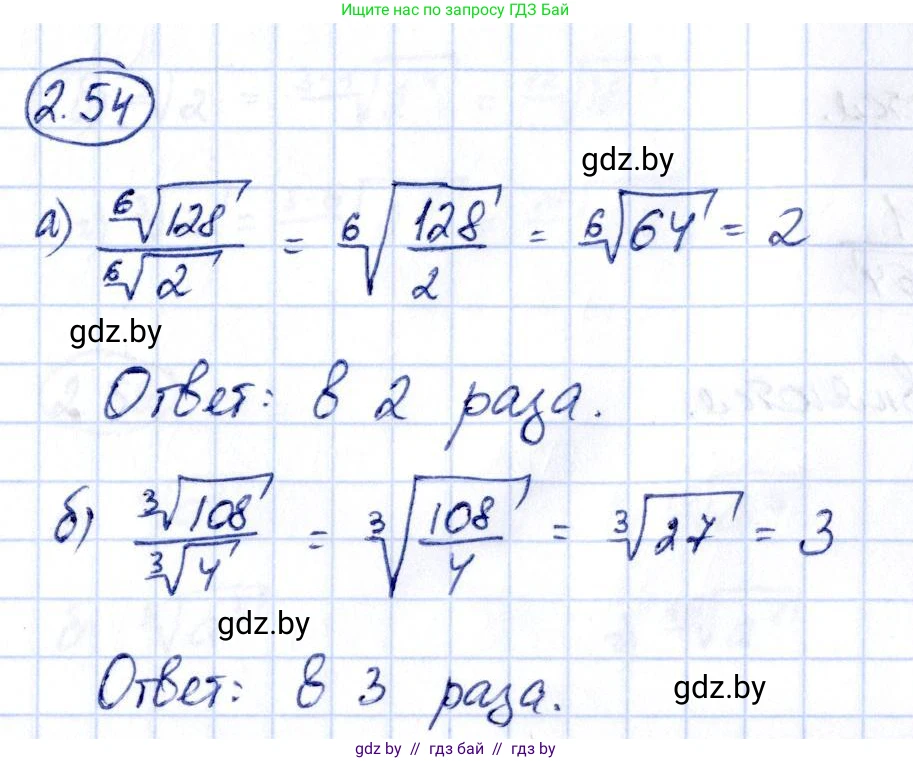 Ищите нас по запросу ГДЗ Бай
2.54
gdz.by
а) ⁶√128 / ⁶√2 = ⁶√(128/2) = ⁶√64 = 2
gdz.by
Ответ: в 2 раза.
б) ³√108 / ³√4 = ³√(108/4) = ³√27 = 3
gdz.by
Ответ: в 3 раза.
gdz.by
gdz.by // гдз бай // гдз by